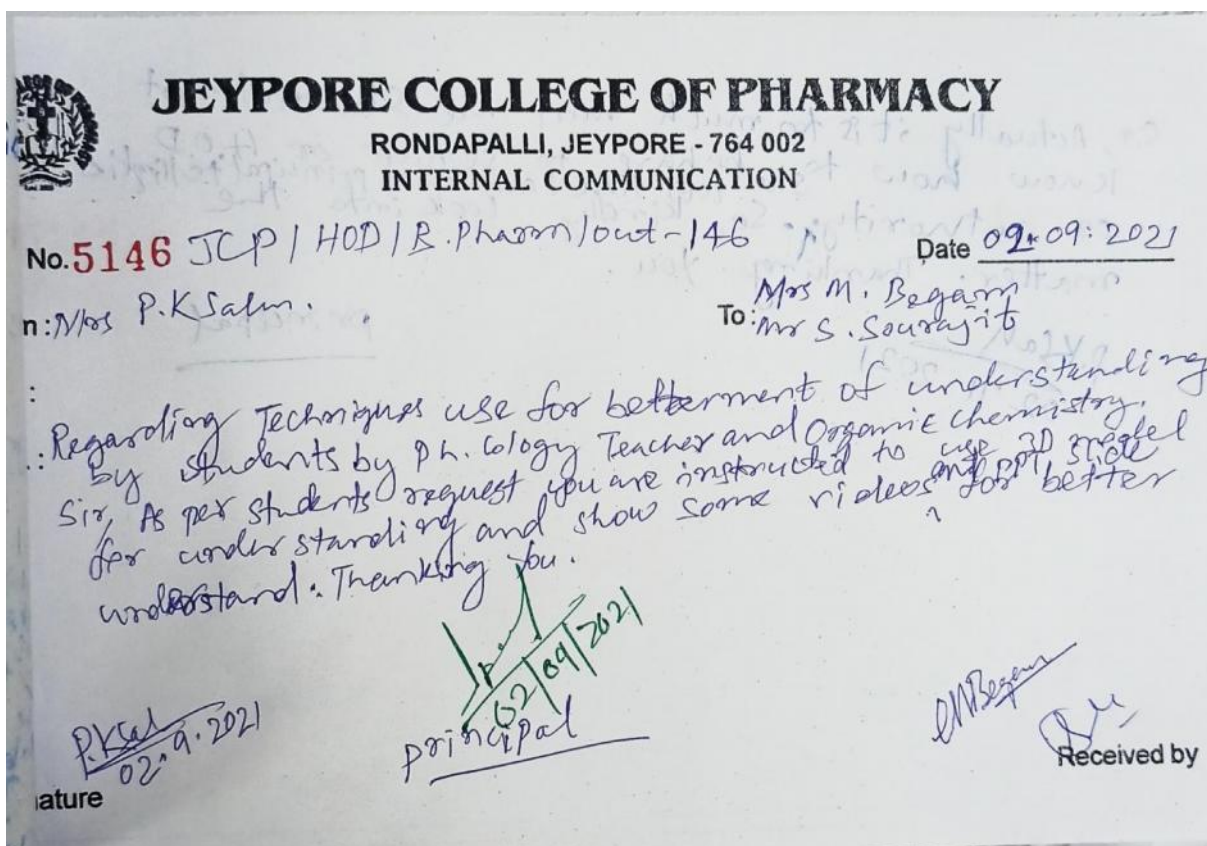 JEYPORE COLLEGE OF PHARMACY
RONDAPALLI, JEYPORE - 764 002
INTERNAL COMMUNICATION
No. 5146 JCP/HOD/B.Pharm/out-146 Date 02.09.2021
n: Mrs P.K Sahu. To: Mrs M. Begam
Mr S. Sourajit
:
: Regarding Techniques use for betterment of understanding
by students by Ph. cology Teacher and Organic Chemistry.
Sir, As per students request you are instructed to use 3D model
for understanding and show some videos and ppt slide for better
understand. Thanking you.
02/09/2021
P.KSah
02.9.2021
principal
MBegam
ature
Received by